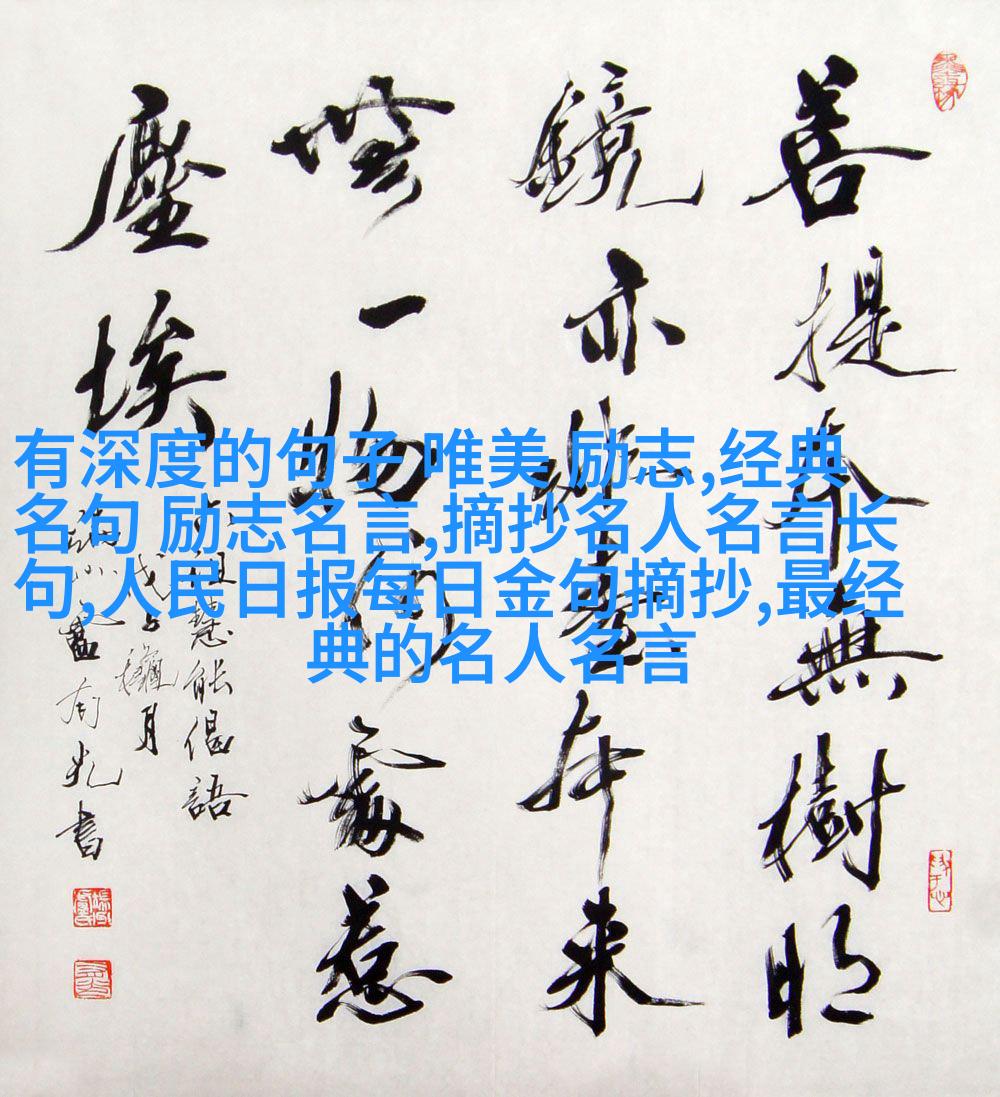 菩提本無樹明
鏡亦非臺本来
無一物何處惹
塵埃
六祖慧能偈語
有深度的句子 唯美 励志,经典
名句 励志名言,摘抄名人名言长
句,人民日报每日金句摘抄,最经
典的名人名言